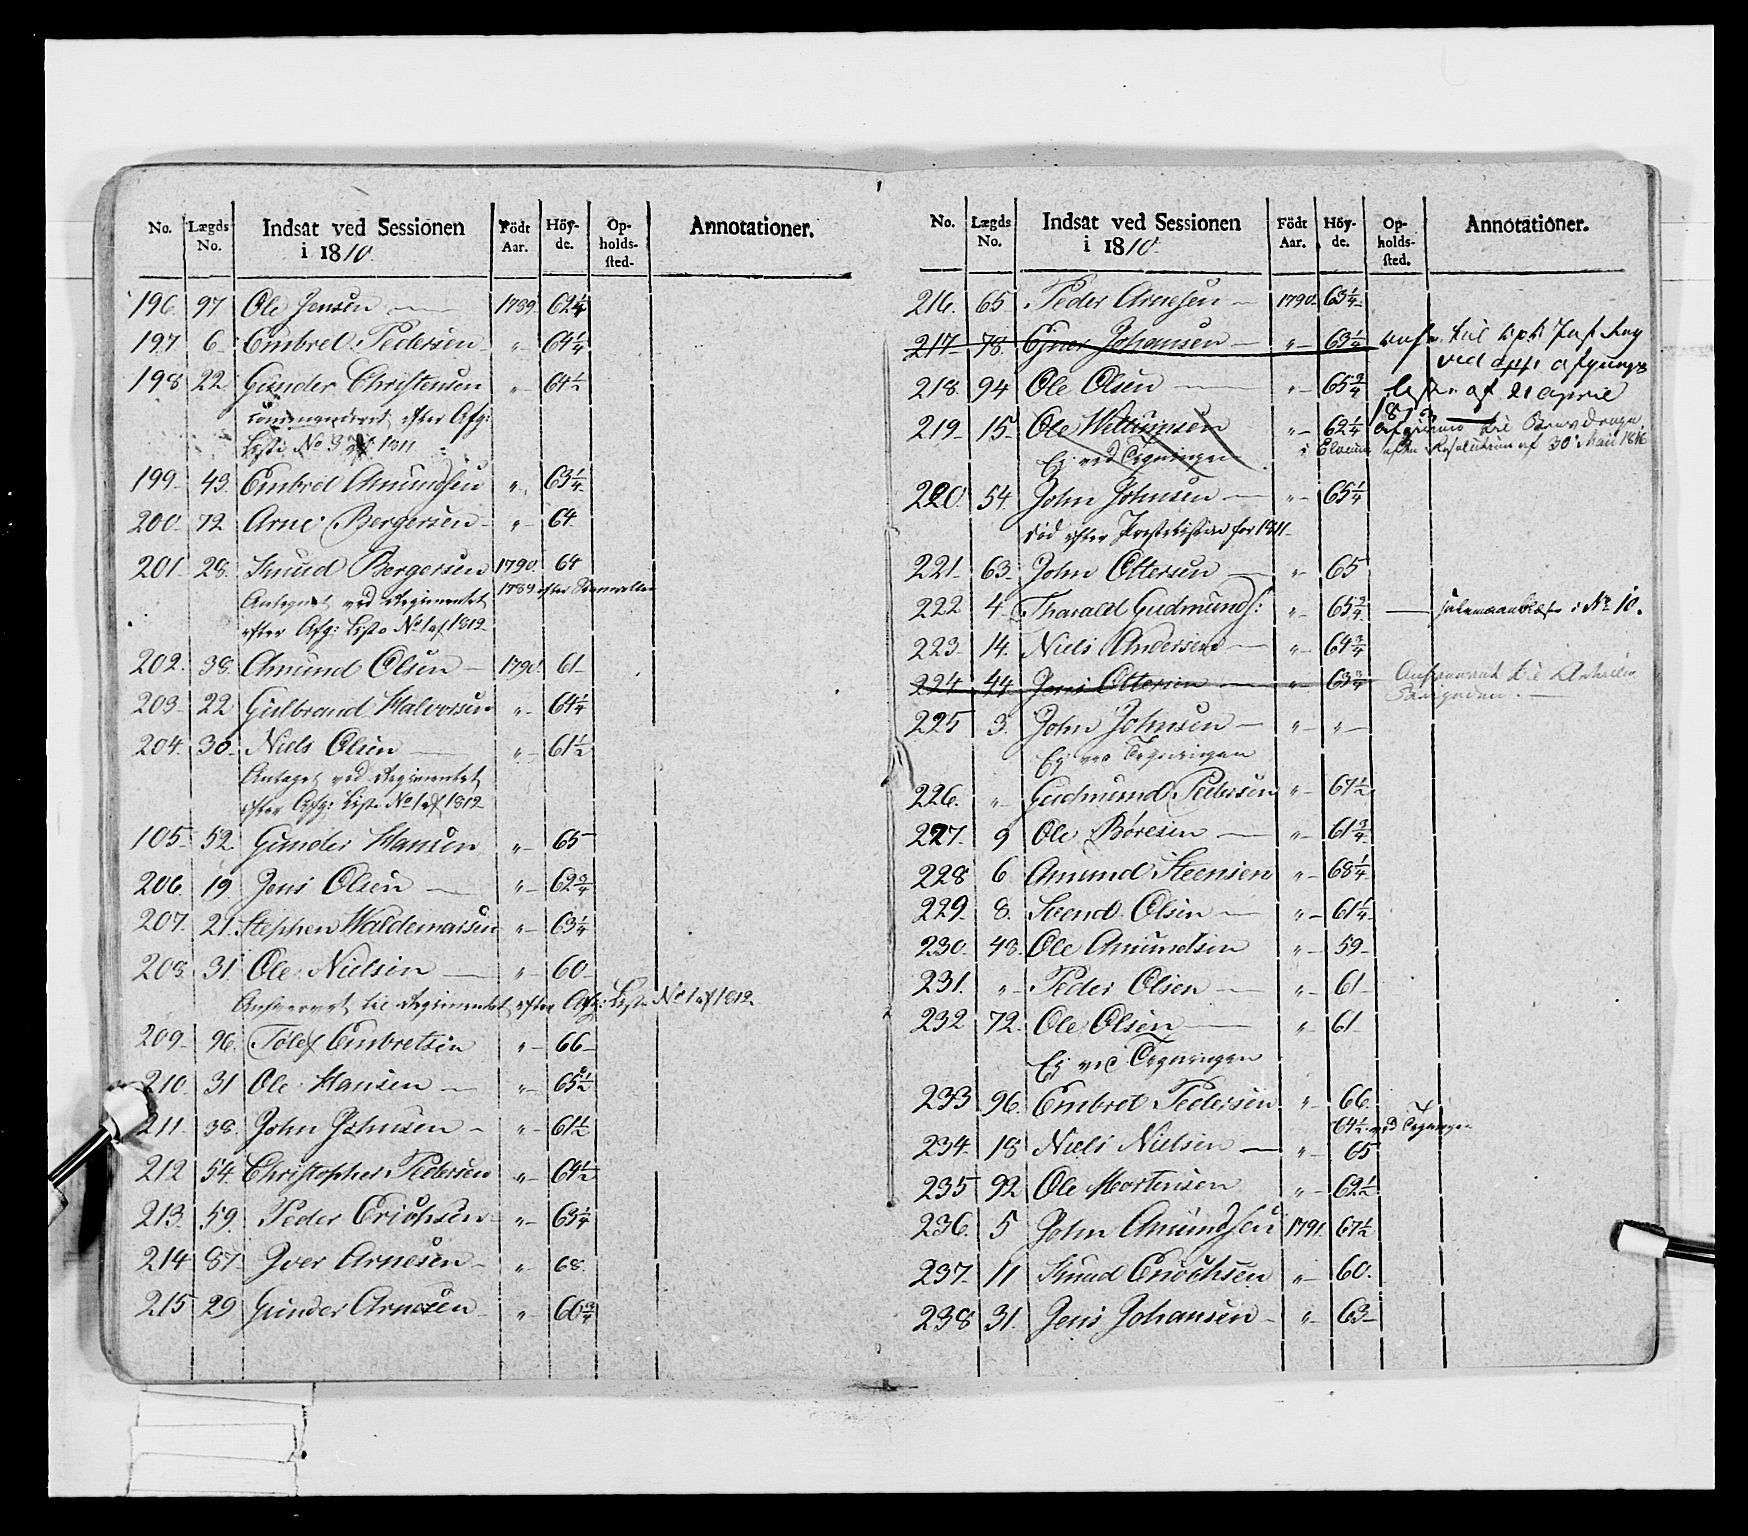 No. Lægds No. Indsat ved Sessionen i 1810. Födt Aar. Höyde. Opholdssted. Annotationer.
196. 97 Ole Jensen — 1789. 62 1/4
197 6. Embret Pedersen " 64 1/4
198 22 Gunder Christensen " 64 1/2
commanderet efter Afg:
Liste No 3 af 1811
199. 43. Embret Amundsen " 63 1/4
200. 72 Arne Bergersen " 64
201. 28. Knud Bergersen 1790. 64
1789 efter
Antaget ved Regimentet
efter Afg: Liste No 1 af 1812
202. 38. Amund Olsen — 1790. 61
203. 22 Gulbrand Halvorsen " 64 1/4
204. 30. Niels Olsen — " 61 1/2
Antaget ved Regimentet
efter Afg: Liste No 1 af 1812
105. 52 Gunder Hansen " 65
206. 19 Jens Olsen — " 62 3/4
207. 21. Stephen Waldemarsen " 63 1/4
208. 31. Ole Nielsen — " 60
til Regimentet efter Afg: Liste No 1 af 1812
209. 96. Tolef Embretsen " 66
210. 31 Ole Hansen — " 65 1/2
211. 38. John Johnsen — " 61 1/2
212 54. Christopher Pedersen " 64 1/2
213. 59. Peder Erichsen " 63 1/4
214 87. Iver Arnesen " 68.
215 29 Gunder Arnesen " 60 3/4
No. Lægds No. Indsat ved Sessionen i 1810. Födt Aar. Höyde. Opholdssted. Annotationer.
216. 65 Peder Arnesen — 1790. 63 1/4
217 78. Ejner Johansen — " 63 1/4 til
ved afgangs
218. 94 Ole Olsen — " 65 3/4 liste af 21 April
1813
219. 15. Ole Willumsen " 62 1/4 til
Ej ved Tegningen i Elverum efter Resolution af 30 Mai 1816
220. 54. John Johnsen — " 65 1/4
død efter Præstelisten for 1811
221. 63. John Ottersen — " 65
222 4. Tharald Gudmunds: " 65 3/4 — i No 10.
223. 14. Niels Andersen — " 64 3/4
224 44. Jens Ottersen — " 63 3/4 til
225 3. John Johnsen — " "
Ej ved Tegningen
226. " Gudmund Pedersen " 67 1/2
227. 9 Ole Børesen — " 61 3/4
228 6. Amund Steensen " 68 1/4
229. 8. Svend Olsen — " 61 1/4
230. 48. Ole Amundsen " 59
231. " Peder Olsen — " 61
232 72. Ole Olsen — " 61
Ej ved Tegningen
233 96. Embret Pedersen " 66.
64 1/2 ved Tegningen
234. 18 Niels Nielsen — " 65
235 92 Ole Mortensen " 62 1/2
236. 5 John Amundsen 1791. 67 1/2
237. 11 Knud Enochsen " 60.
238 31. Jens Johansen — " 63